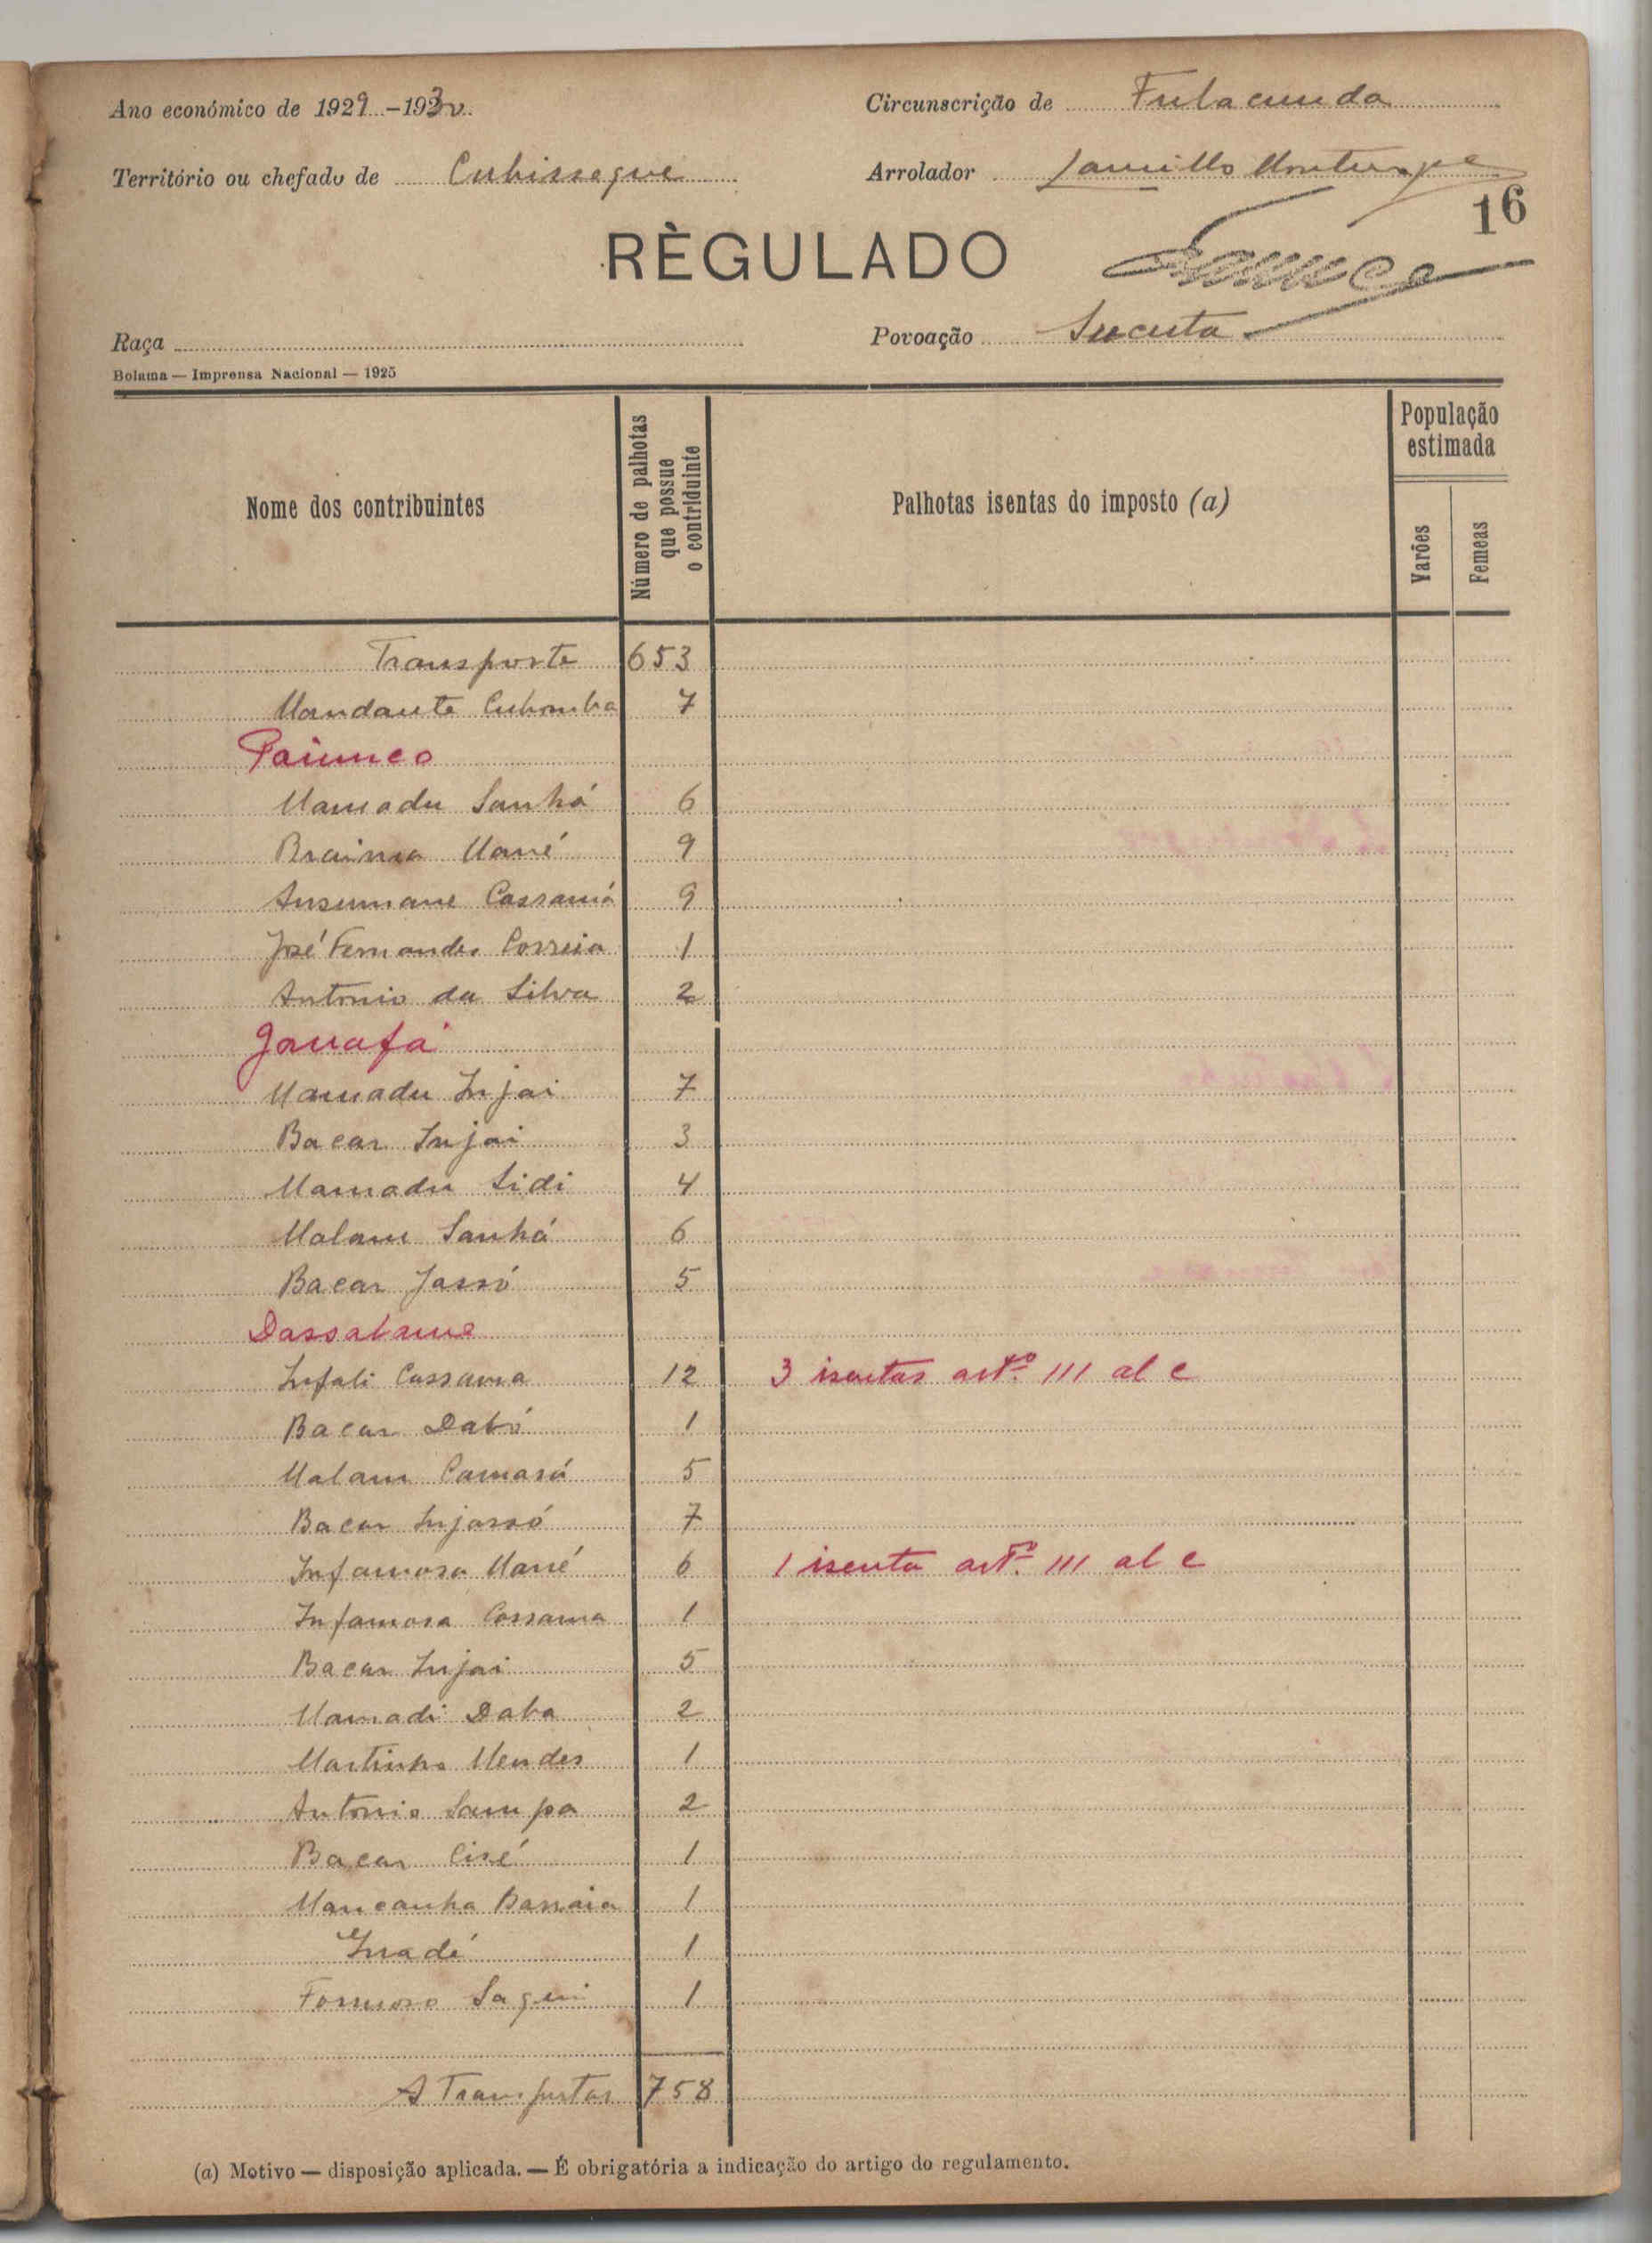 Ano económico de 1929 -1930
Circunscrição de Fulacunda
Território ou chefado de Cubisseque
Arrolador
16
RÈGULADO
Raça
Povoação Sucuta
Bolama — Imprensa Nacional — 1925
Nome dos contribuintes
Número de palhotas que possue o contriduinte
Palhotas isentas do imposto (a)
População estimada
Varões
Femeas
Transporte 653
Mandaute Cubomba 7
Paiunco
Mamadu Sanhá 6
Braima Mané 9
Ansumane Cassamá 9
José Fernandes Correia 1
Antonio da Silva 2
Janafá
Mamadu Injai 7
Bacar Injai 3
Mamadu Sidi 4
Malam Sanhá 6
Bacar Jassó 5
Dassalame
Infali Cassama 12 3 isentas artº. 111 al c
Bacar Dabó 1
Malam Camará 5
Bacar Injassó 7
Infamosa Mané 6 1 isenta artº. 111 al c
Infamosa Cassama 1
Bacar Injai 5
Mamadi Daba 2
Martinho Mendes 1
Antonio Sampa 2
Bacar Cisé 1
Mancanha Bassaia 1
Inadé 1
Formoso Sagui 1
A Transportar 758
(a) Motivo — disposição aplicada. — É obrigatória a indicação do artigo do regulamento.